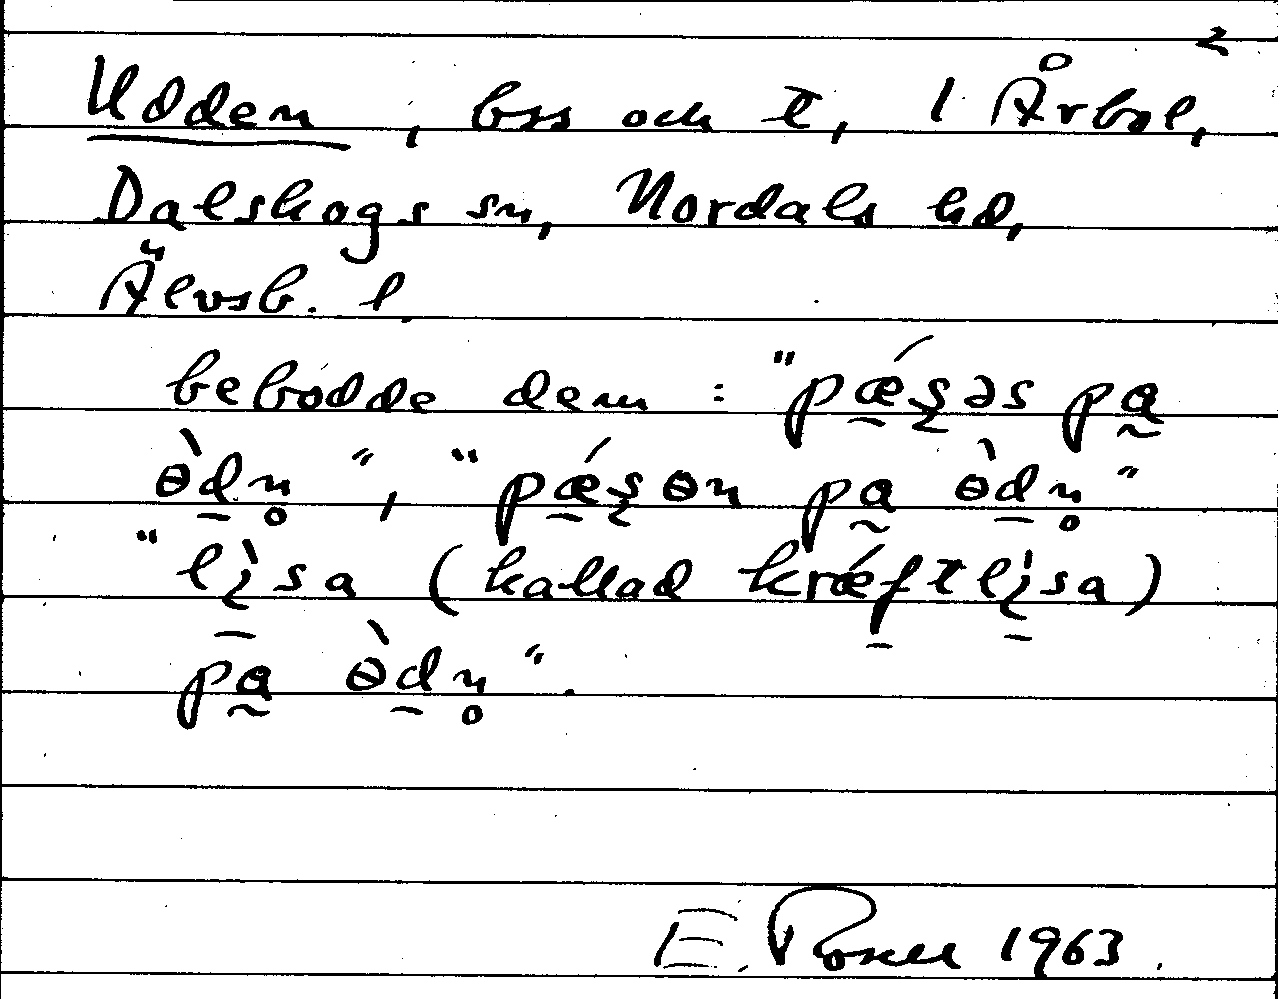 2
Udden, bss och t, 1 Årbol,
Dalskogs sn, Nordals hd,
Älvsb. l.
bebodde dem: "pǽʂəs pa
ɵ̀dn̥", "pǽʂɵn pa ɵ̀dn̥"
"lìsa (kallad kræ̀ftlìsa)
pa ɵ̀dn̥".
E. Rosell 1963.